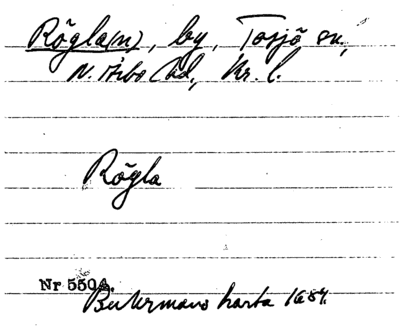 Rögla(n), by, Tosjö sn,
N. Åsbo hd, Kr. l.
Rögla
Nr 5504.
Buhrmans karta 1684.